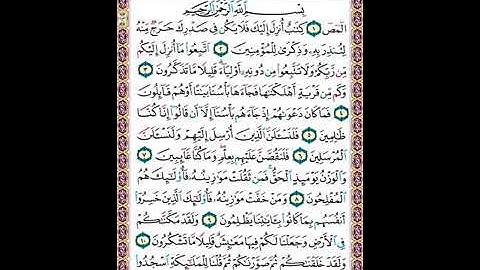 بِسْمِ اللَّهِ الرَّحْمَٰنِ الرَّحِيمِ
الٓمٓصٓ ١ كِتَٰبٌ أُنزِلَ إِلَيْكَ فَلَا يَكُن فِى صَدْرِكَ حَرَجٌ مِّنْهُ
لِتُنذِرَ بِهِۦ وَذِكْرَىٰ لِلْمُؤْمِنِينَ ٢ ٱتَّبِعُوا۟ مَآ أُنزِلَ إِلَيْكُم
مِّن رَّبِّكُمْ وَلَا تَتَّبِعُوا۟ مِن دُونِهِۦٓ أَوْلِيَآءَ ۗ قَلِيلًا مَّا تَذَكَّرُونَ ٣
وَكَم مِّن قَرْيَةٍ أَهْلَكْنَٰهَا فَجَآءَهَا بَأْسُنَا بَيَٰتًا أَوْ هُمْ قَآئِلُونَ
٤ فَمَا كَانَ دَعْوَىٰهُمْ إِذْ جَآءَهُم بَأْسُنَآ إِلَّآ أَن قَالُوٓا۟ إِنَّا كُنَّا
ظَٰلِمِينَ ٥ فَلَنَسْـَٔلَنَّ ٱلَّذِينَ أُرْسِلَ إِلَيْهِمْ وَلَنَسْـَٔلَنَّ
ٱلْمُرْسَلِينَ ٦ فَلَنَقُصَّنَّ عَلَيْهِم بِعِلْمٍ ۖ وَمَا كُنَّا غَآئِبِينَ ٧
وَٱلْوَزْنُ يَوْمَئِذٍ ٱلْحَقُّ ۚ فَمَن ثَقُلَتْ مَوَٰزِينُهُۥ فَأُو۟لَٰٓئِكَ هُمُ
ٱلْمُفْلِحُونَ ٨ وَمَنْ خَفَّتْ مَوَٰزِينُهُۥ فَأُو۟لَٰٓئِكَ ٱلَّذِينَ خَسِرُوٓا۟
أَنفُسَهُم بِمَا كَانُوا۟ بِـَٔايَٰتِنَا يَظْلِمُونَ ٩ وَلَقَدْ مَكَّنَّٰكُمْ
فِى ٱلْأَرْضِ وَجَعَلْنَا لَكُمْ فِيهَا مَعَٰيِشَ ۗ قَلِيلًا مَّا تَشْكُرُونَ ١٠
وَلَقَدْ خَلَقْنَٰكُمْ ثُمَّ صَوَّرْنَٰكُمْ ثُمَّ قُلْنَا لِلْمَلَٰٓئِكَةِ ٱسْجُدُوا۟